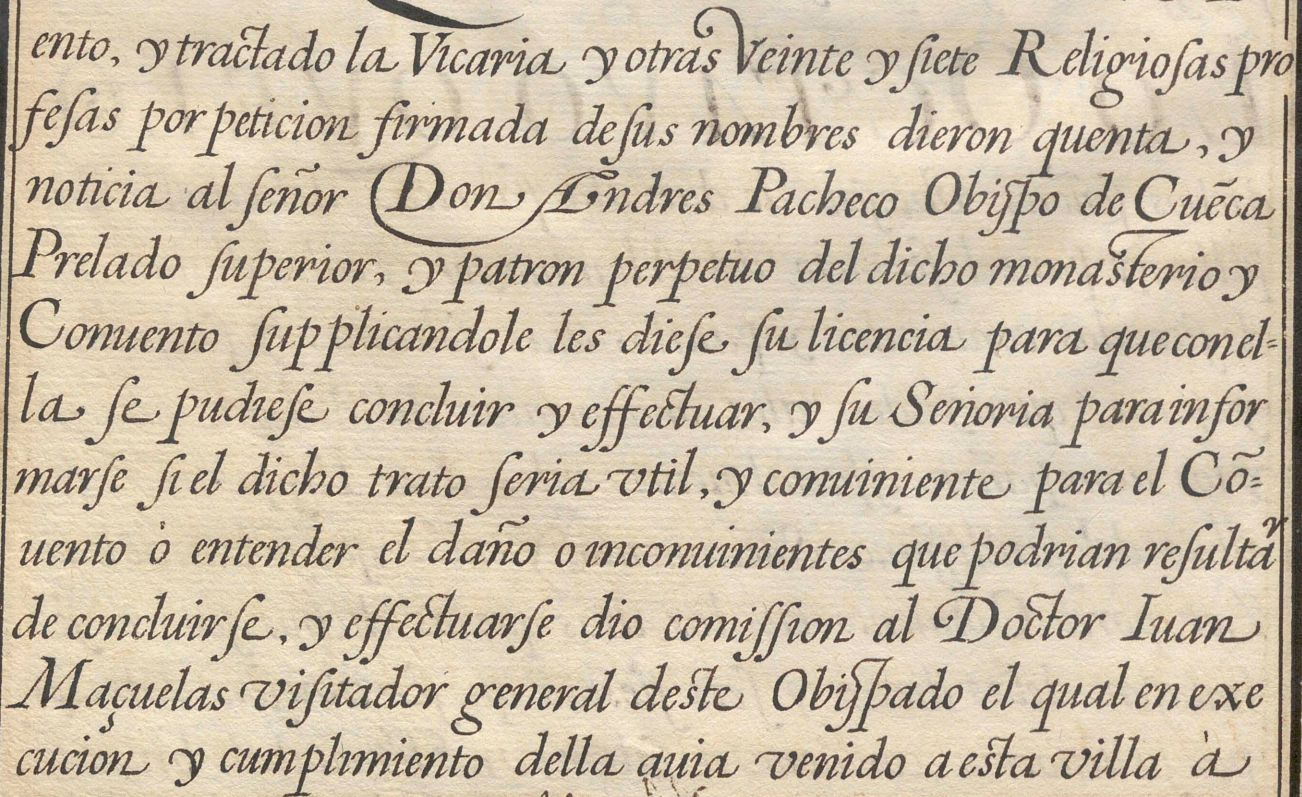 ento, y tractado la Vicaria y otras Veinte y siete Religiosas pro
fesas por peticion firmada de sus nombres dieron quenta, y
noticia al señor Don Andres Pacheco Obispo de Cuẽca
Prelado superior, y patron perpetuo del dicho monasterio y
Conuento supplicandole les diese su licencia para que con el=
la se pudiese concluir y effectuar, y su Señoria para infor
marse si el dicho trato seria vtil, y conuiniente para el Cõ=
uento ò entender el daño o inconuinientes que podrian resultar
de concluirse, y effectuarse dio comission al Doctor Iuan
Maçuelas visitador general deste Obispado el qual en exe
cucion y cumplimiento della auia venido a esta villa à